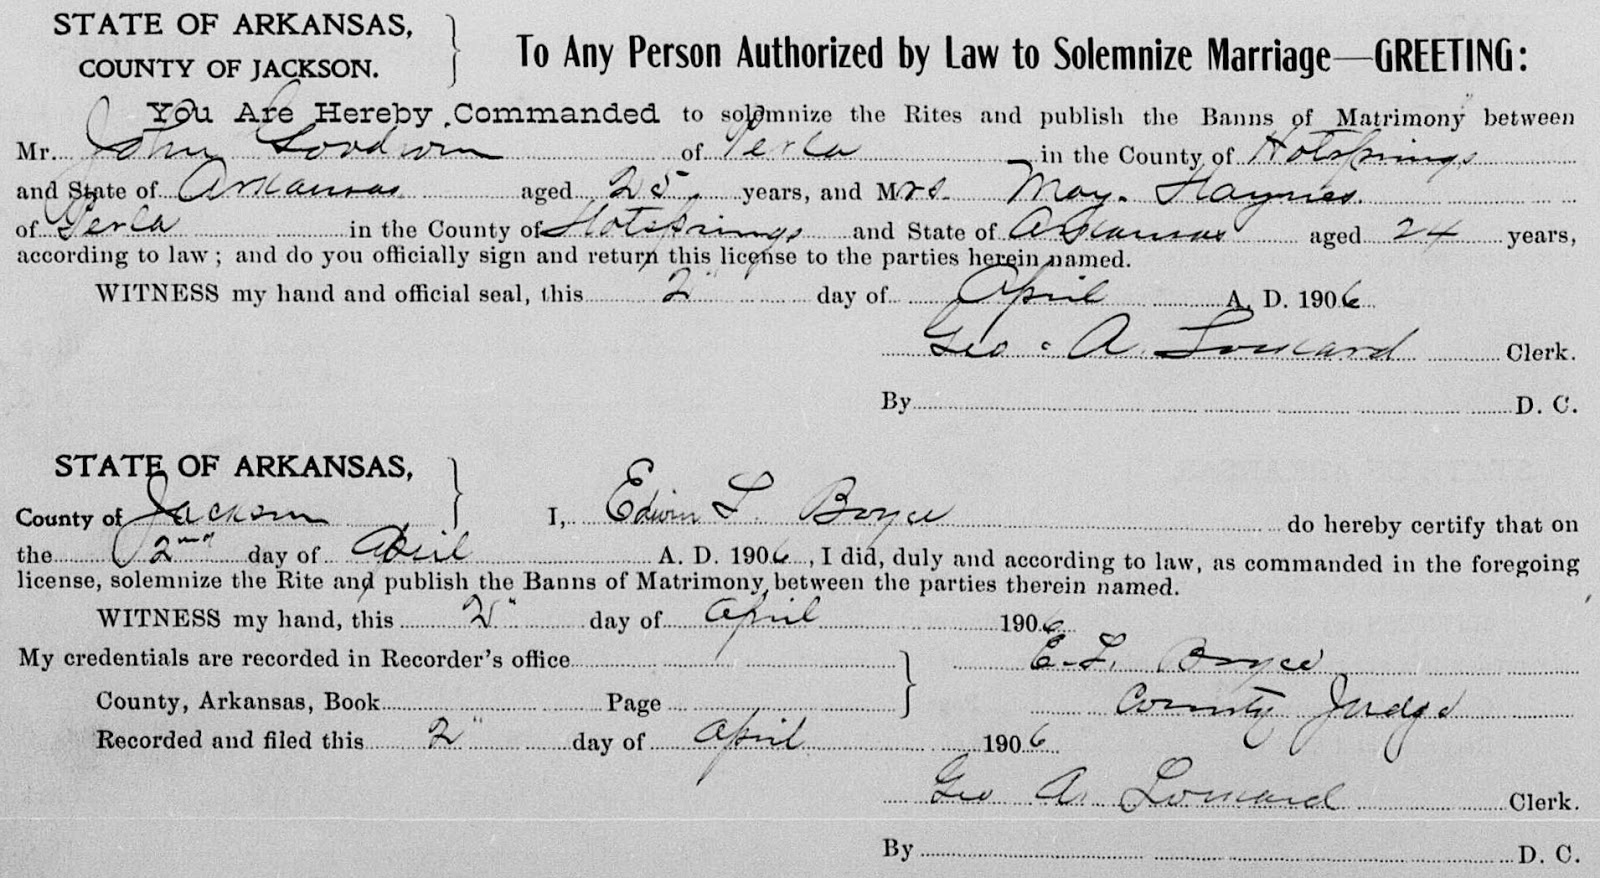 STATE OF ARKANSAS,
COUNTY OF JACKSON.
To Any Person Authorized by Law to Solemnize Marriage—GREETING:
You Are Hereby Commanded to solemnize the Rites and publish the Banns of Matrimony between
Mr. John Goodwin of Perla in the County of Hotsprings
and State of Arkansas aged 25 years, and Mrs. May Haynes.
of Perla in the County of Hotsprings and State of Arkansas aged 24 years,
according to law; and do you officially sign and return this license to the parties herein named.
WITNESS my hand and official seal, this 2" day of April A. D. 1906
Geo. A. Clerk.
By D. C.
STATE OF ARKANSAS,
County of Jackson I, Edwin L. Boyce do hereby certify that on
the 2nd day of April A. D. 1906, I did, duly and according to law, as commanded in the foregoing
license, solemnize the Rite and publish the Banns of Matrimony between the parties therein named.
WITNESS my hand, this 2" day of April 1906
My credentials are recorded in Recorder's office E. L. Boyce
County, Arkansas, Book Page County Judge
Recorded and filed this 2" day of April 1906
Geo A. Clerk.
By D. C.